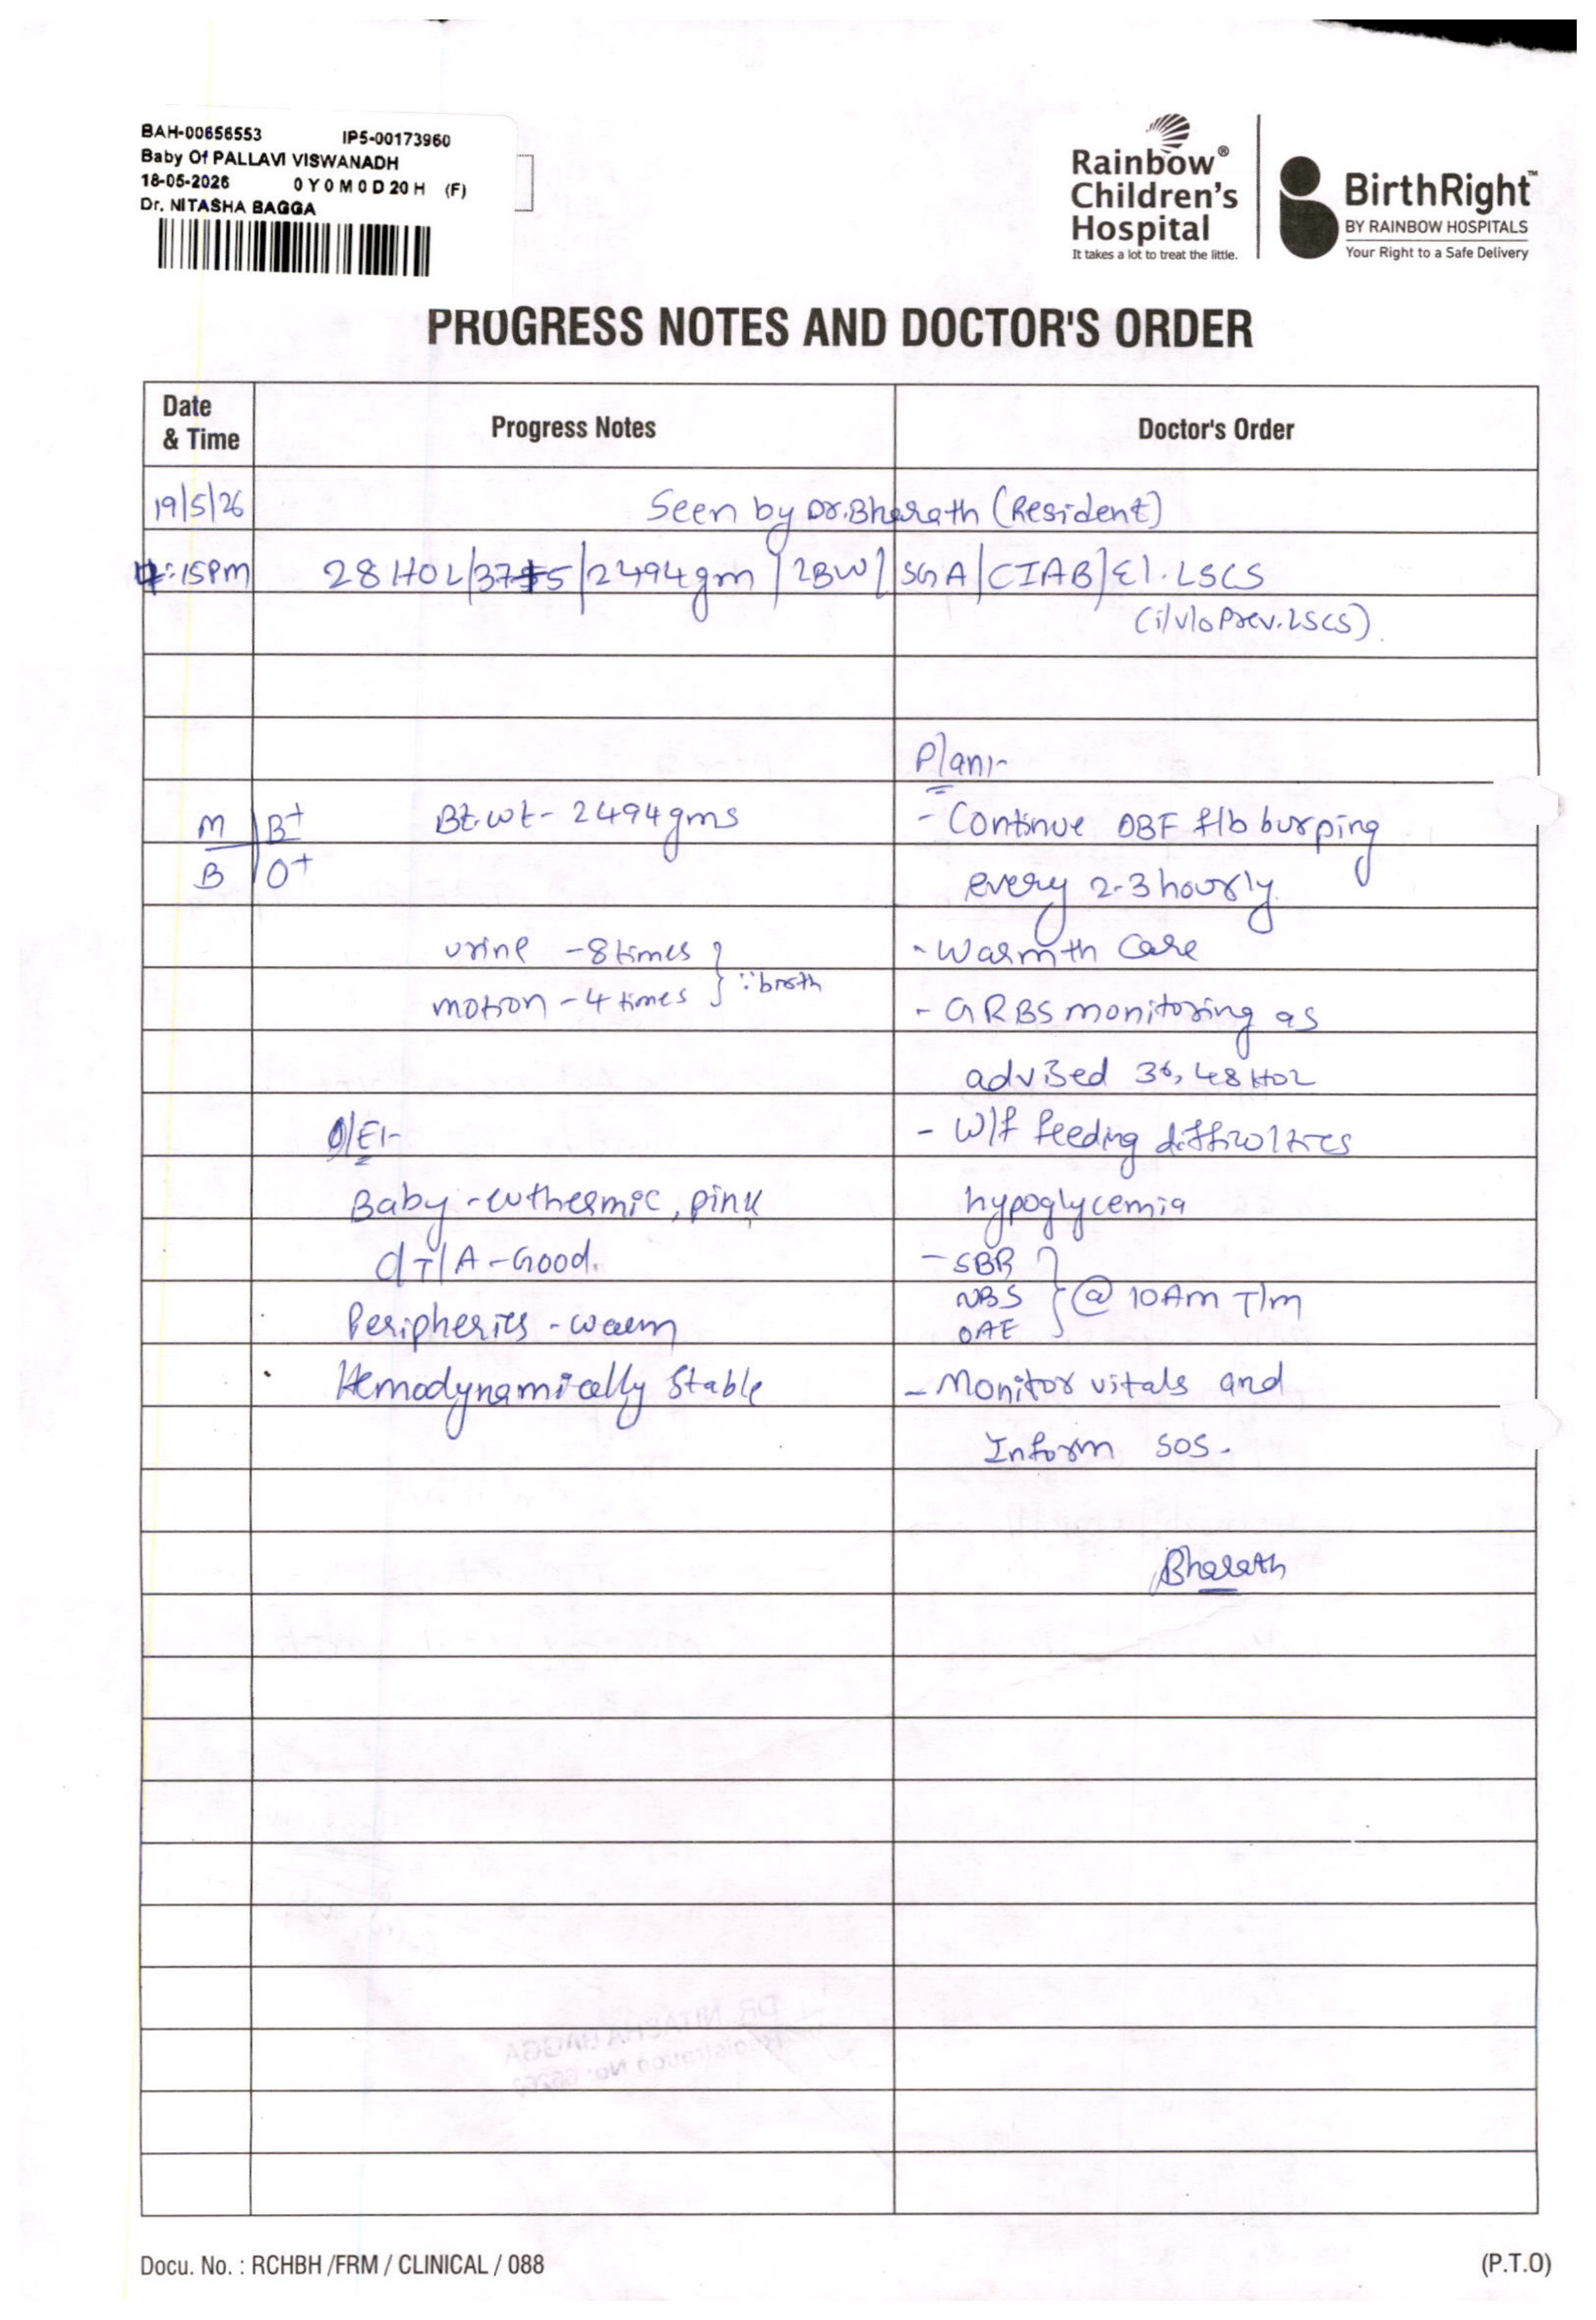 BAH-00656553 IP5-00173960
Baby Of PALLAVI VISWANADH
18-05-2026 0 Y 0 M 0 D 20 H (F)
Dr. NITASHA BAGGA
Rainbow®
Children's
Hospital
It takes a lot to treat the little.
BirthRight™
BY RAINBOW HOSPITALS
Your Right to a Safe Delivery
PROGRESS NOTES AND DOCTOR'S ORDER
Date & Time
Progress Notes
Doctor's Order
19/5/26 Seen by Dr.Bharath (Resident)
4:15pm 28 HOL/37+5/2494gm/LBW/SGA/CIAB/El.LSCS
(i/v/o Prev.LSCS).
Plan:-
M B+ Bt.wt- 2494gms - Continue DBF f/b burping
B O+ every 2-3 hourly.
urine - 8 times - Warmth Care
motion - 4 times } ∵ birth - GRBS monitoring as
advised 36, 48 HOL
O/E:- - W/f feeding difficulties
Baby - euthermic, pink hypoglycemia
C/T/A - Good. - SBR
NBS } @ 10Am T/m
Peripheries - warm OAE
Hemodynamically Stable - Monitor vitals and
Inform SOS.
Bharath
DR. NITASHA BAGGA
Registration No:
Docu. No. : RCHBH /FRM / CLINICAL / 088 (P.T.O)